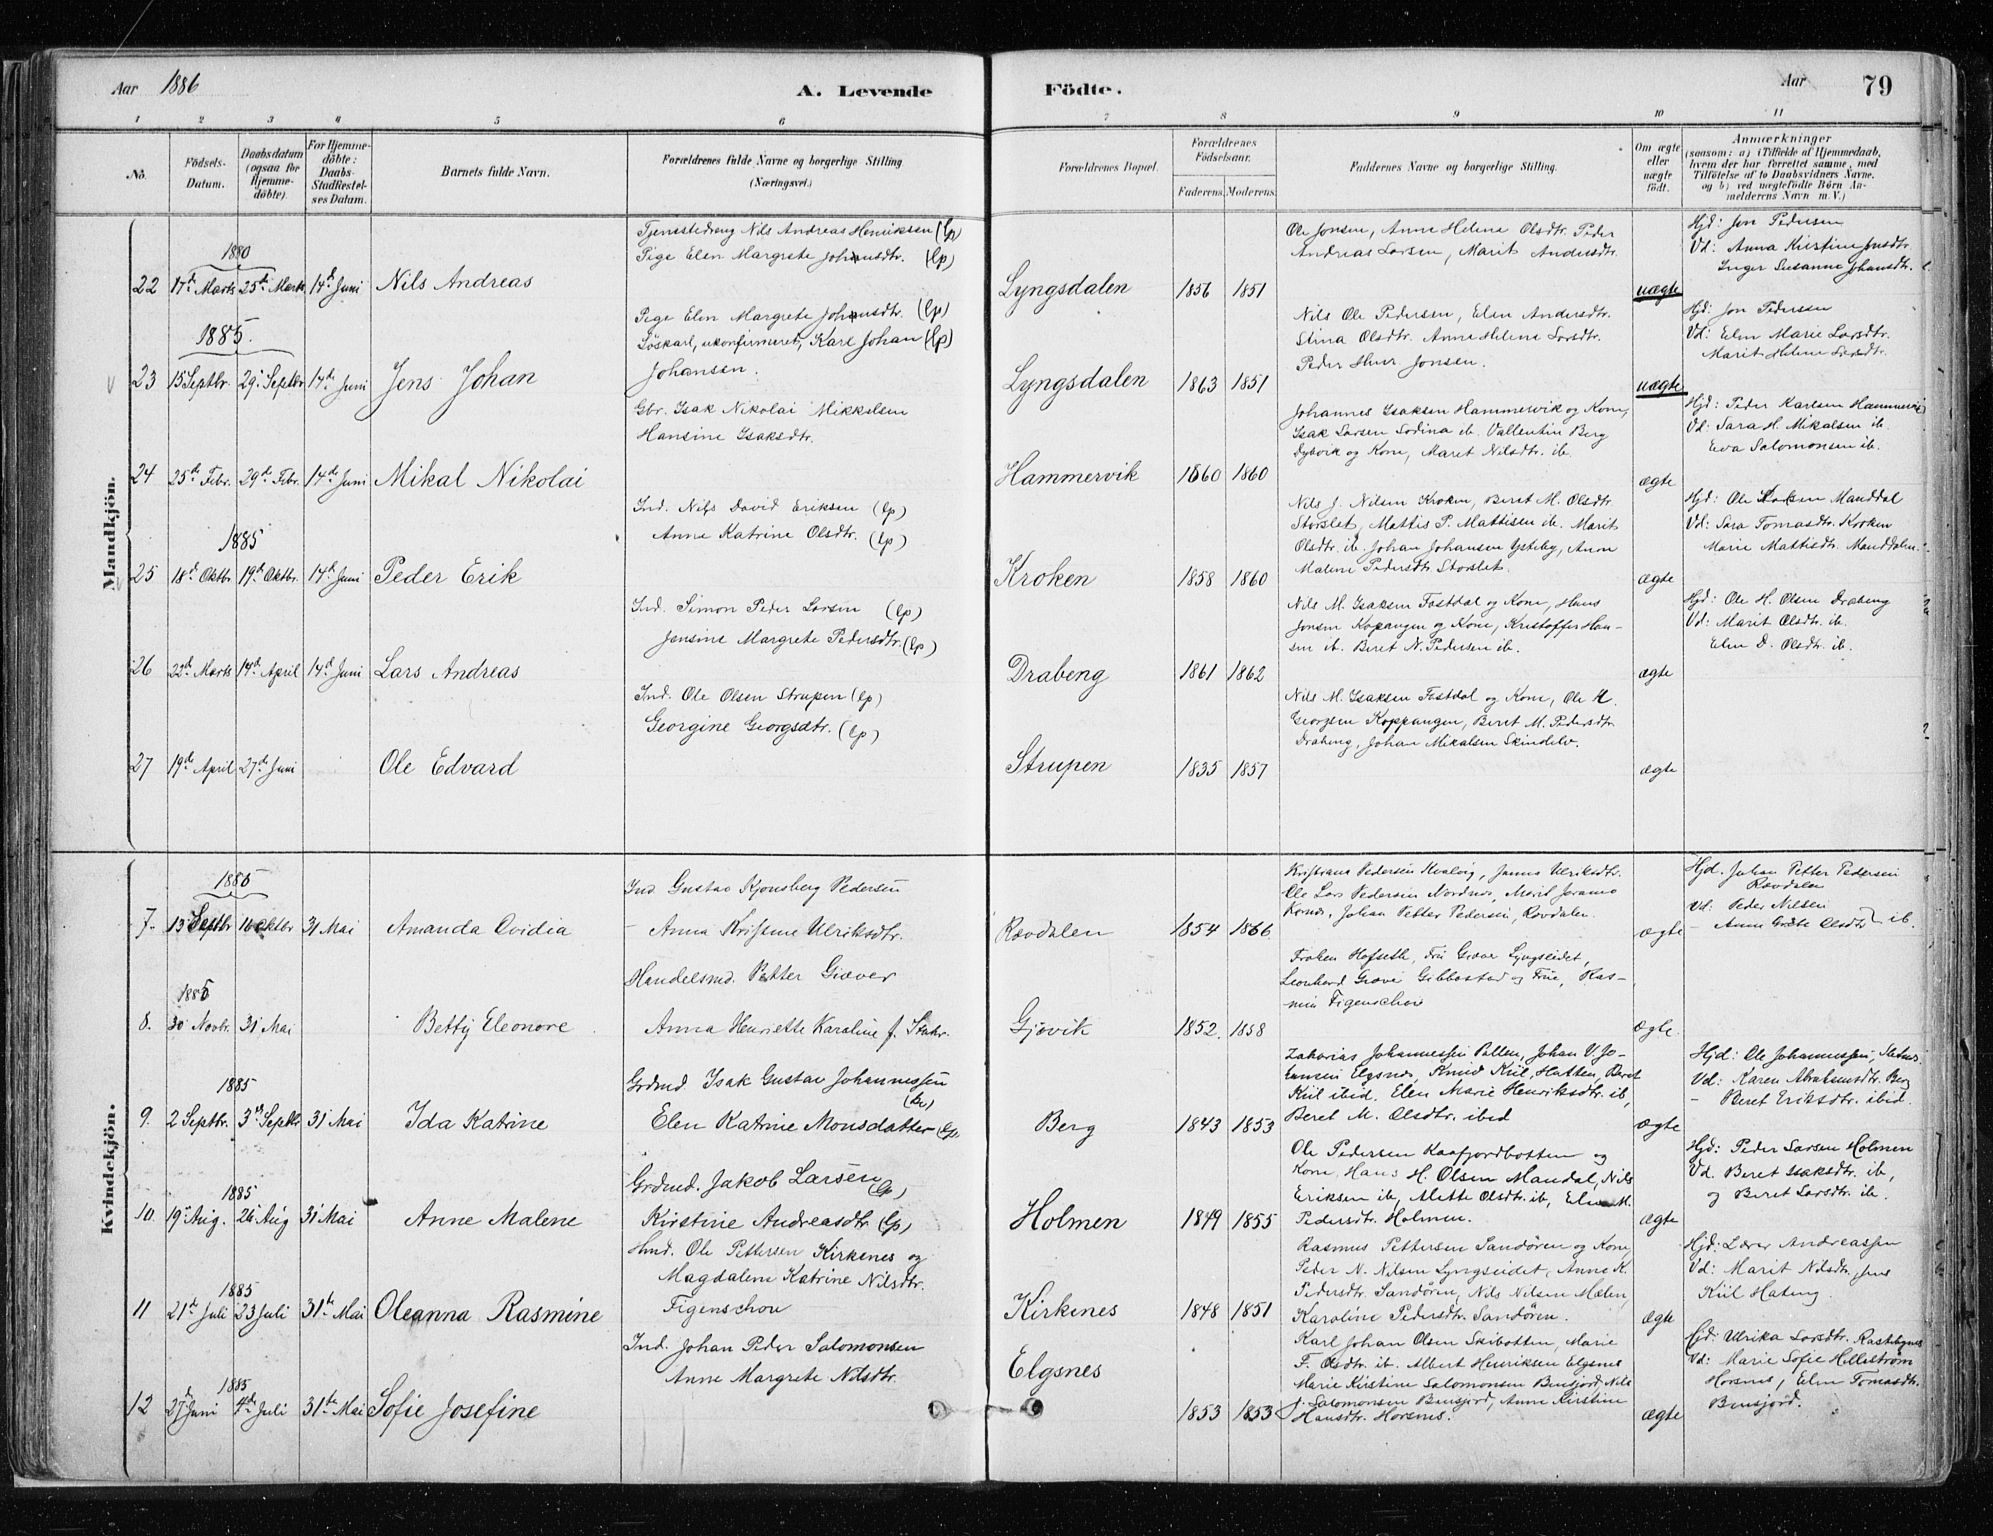 Aar 1886
A. Levende
Födte.
Aar
79
1 2 3 4 5 6 7 8 9 10 11
No.
Födsels-Datum.
Daabsdatum (ogsaa for Hjemme-döbte).
For Hjemme-döbte: Daabs-Stadfæstel-ses Datum.
Barnets fulde Navn.
Forældrenes fulde Navne og borgerlige Stilling (Næringsvei.)
Forældrenes Bopæl.
Forældrenes Födselsaar.
Faderens. Moderens.
Faddernes Navne og borgerlige Stilling.
Om ægte eller uægte födt.
Anmærkninger
(saasom: a) i Tilfælde af Hjemmedaab,
hvem der har forrettet samme, med
Tilföielse af to Daabsvidners Navne,
og b) ved uægtefödte Börn An-
melderens Navn m. V.)
Mandkjön.
1880
22 17de Marts 25de Marts 14de Juni Nils Andreas
Tjenestedreng Nils Andreas Henriksen (Lp)
Pige Elen Margrete Johansdtr. (Lp)
Lyngsdalen 1856 1851
Ole Jonsen, Anne Helena Olsdtr. Peder
Andreas Larsen, Marit Andersdtr.
uægte
Hjd: Jon Pedersen
Vd: Anna Kirstine Jnsdtr.
Inger Susanne Johansdtr.
1885.
23 15 Septbr. 29de Septbr 14de Juni Jens Johan
Pige Elen Margrete Johansdtr. (Lp)
Löskarl, ukonfirmeret, Karl Johan (Lp)
Johansen.
Lyngsdalen 1863 1851
Nils Ole Pedersen, Elen Andersdtr.
Stina Olsdtr. Anne Helene Larsdtr.
Peder Henr Jonsen.
uægte
Hjd: Jon Pedersen
Vd: Elen Marie Larsdtr.
Marit Helene Larsdtr.
24 25de Febr. 29de Febr. 14de Juni Mikal Nikolai
Gbr. Isak Nikolai Mikkelsen
Hansine Isaksdtr.
Hammervik 1860 1860
Johannes Isaksen Hammervik og Kone,
Isak Larsen Sodina ib. Vallentin Berg
Dybvik og Kone, Maret Nilsdtr. ib.
ægte
Hjd: Peder Karlsen Hammervik
Vd: Sara H. Mikalsen ib.
Eva Salomonsen ib.
1885
25 18de Oktbr 19de Oktbr. 14de Juni Peder Erik
Ind. Nils David Eriksen (Lp)
Anne Katrine Olsdtr. (Lp)
Kroken 1858 1860
Nils J. Nilsen Kroken, Beret M. Olsdtr.
Storslet, Mattis P. Mattisen ib. Marit
Olsdtr. ib. Johan Johansen Ysteby, Anne
Malene Pedersdtr. Storslet.
ægte
Hjd: Ole Larsen Manddal
Vd: Sara Tomasdtr. Kroken
Marie Mattisdtr. Manddalen.
26 22de Marts 14de April 14de Juni Lars Andreas
Ind. Simon Peder Larsen (Lp)
Jensine Margrete Pedersdtr. (Lp)
Drabeng 1861 1862
Nils M. Isaksen Fastdal og Kone, Hans
Jonsen Kopangen og Kone, Kristoffer Han-
sen ib. Beret N. Pedersen ib.
ægte
Hjd: Ole H. Olsen Drabeng
Vd: Marit Olsdtr. ib.
Elen D. Olsdtr. ib.
27 19de April 27de Juni Ole Edvard
Ind. Ole Olsen Strupen (Lp)
Georgine Georgsdtr. (Lp)
Strupen 1835 1857
Nils M. Isaksen Fastdal og Kone, Ole H.
Georgsen Koppangen, Beret M. Pedersdtr.
Drabeng, Johan Mikalsen Skindelv.
ægte
Kvindekjön.
1885
7. 13 Septbr 16 Oktbr 31 Mai Amanda Ovidia
Ind Gustav Kjonsberg Pedersen
Anna Kristine Ulriksdtr.
Rovdalen 1854 1866
Kristiana Pedersen Kvalvig, Janna Ulriksdtr.
Ole Lars Pedersen Nordnes, Marit
Johan Petter Pedersen, Rovdalen.
ægte
Hjd. Johan Petter Pedersen
Rovdalen
Vd: Peder Nilsen
- Anne Grete Olsdtr ib.
1885
8. 30 Novbr. 31 Mai Betty Eleonore
Handelsmd. Petter Giæver
Anna Henriette Karoline f.
Gjövik 1852. 1858
Frøken Hofseth, Fru Giæver Lyngseidet,
Leonhard Gibbostad og Frue, Ras-
mus Figenschou
ægte.
1885
9. 2 Septbr. 3 Septbr 31 Mai Ida Katrine
Grdmd Isak Gustav Johannessen
Elen Katrine Monsdatter (Lp)
Berg 1843 1853
Zakarias Johannessen Pollen, Johan V. Jo-
Elgsnes, Knud Kiil, Hatten, Beret
Kiil ibid. Elen Marie Henriksdtr. ib,
Beret M. Olsdtr. ibid
ægte
Hjd: Ole Johannessen,
Vd: Karen Abrahamsdtr. Berg
- Beret Eriksdtr. ibid.
1885
10. 19de Aug. 26 Aug 31 Mai Anne Malene
Grdmd. Jakob Larsen (Lp)
Kirstine Andreasdtr. (Lp)
Holmen 1849 1855
Ole Pedersen Kaafjordbotten og
Kone, Hans H. Olsen Mandal, Nils
Eriksen ib, Alette Olsdtr. ib, Elen M.
Pedersdtr. Holmen.
ægte
Hjd: Peder Larsen Holmen
Vd. Beret Isaksdtr. ib,
og Beret Larsdtr. ib.
1885
11 21de Juli 23 Juli 31te Mai Oleanna Rasmine
Hmd. Ole Pettersen Kirkenes og
Magdalene Katrine Nilsdtr.
Figenschou
Kirkenes 1848 1851
Rasmus Pettersen Sandören og Kone,
Peder N. Nilsen Lyngseidet, Anne K.
Pedersdtr. Sandören, Nils Nilsen Mælen,
Karoline Pedersdtr. Sandören.
ægte
Hjd: Lærer Andreassen
Vd: Marit Nilsdtr, Jens
Kiil Hateng.
1885
12 27de Juni 4de Juli 31te Mai Sofie Josefine
Ind. Johan Peder Salomonsen
Anne Margrete Nilsdtr.
Elgsnes 1853 1853
Karl Johan Olsen Skibotten, Marie
F. Olsdtr. ib. Albert Henriksen Elgsnes
Marie Kirstine Salomonsen Bensjord, Nils
J. Salomonsen Bensjord, Anne Kirstine
Hansdtr. Horsnes.
ægte
Hjd: Ulrika Larsdtr. Rastebynes
Vd: Marie Sofie Hellström
Horsnes, Elen Tomasdtr.
Bensjord.